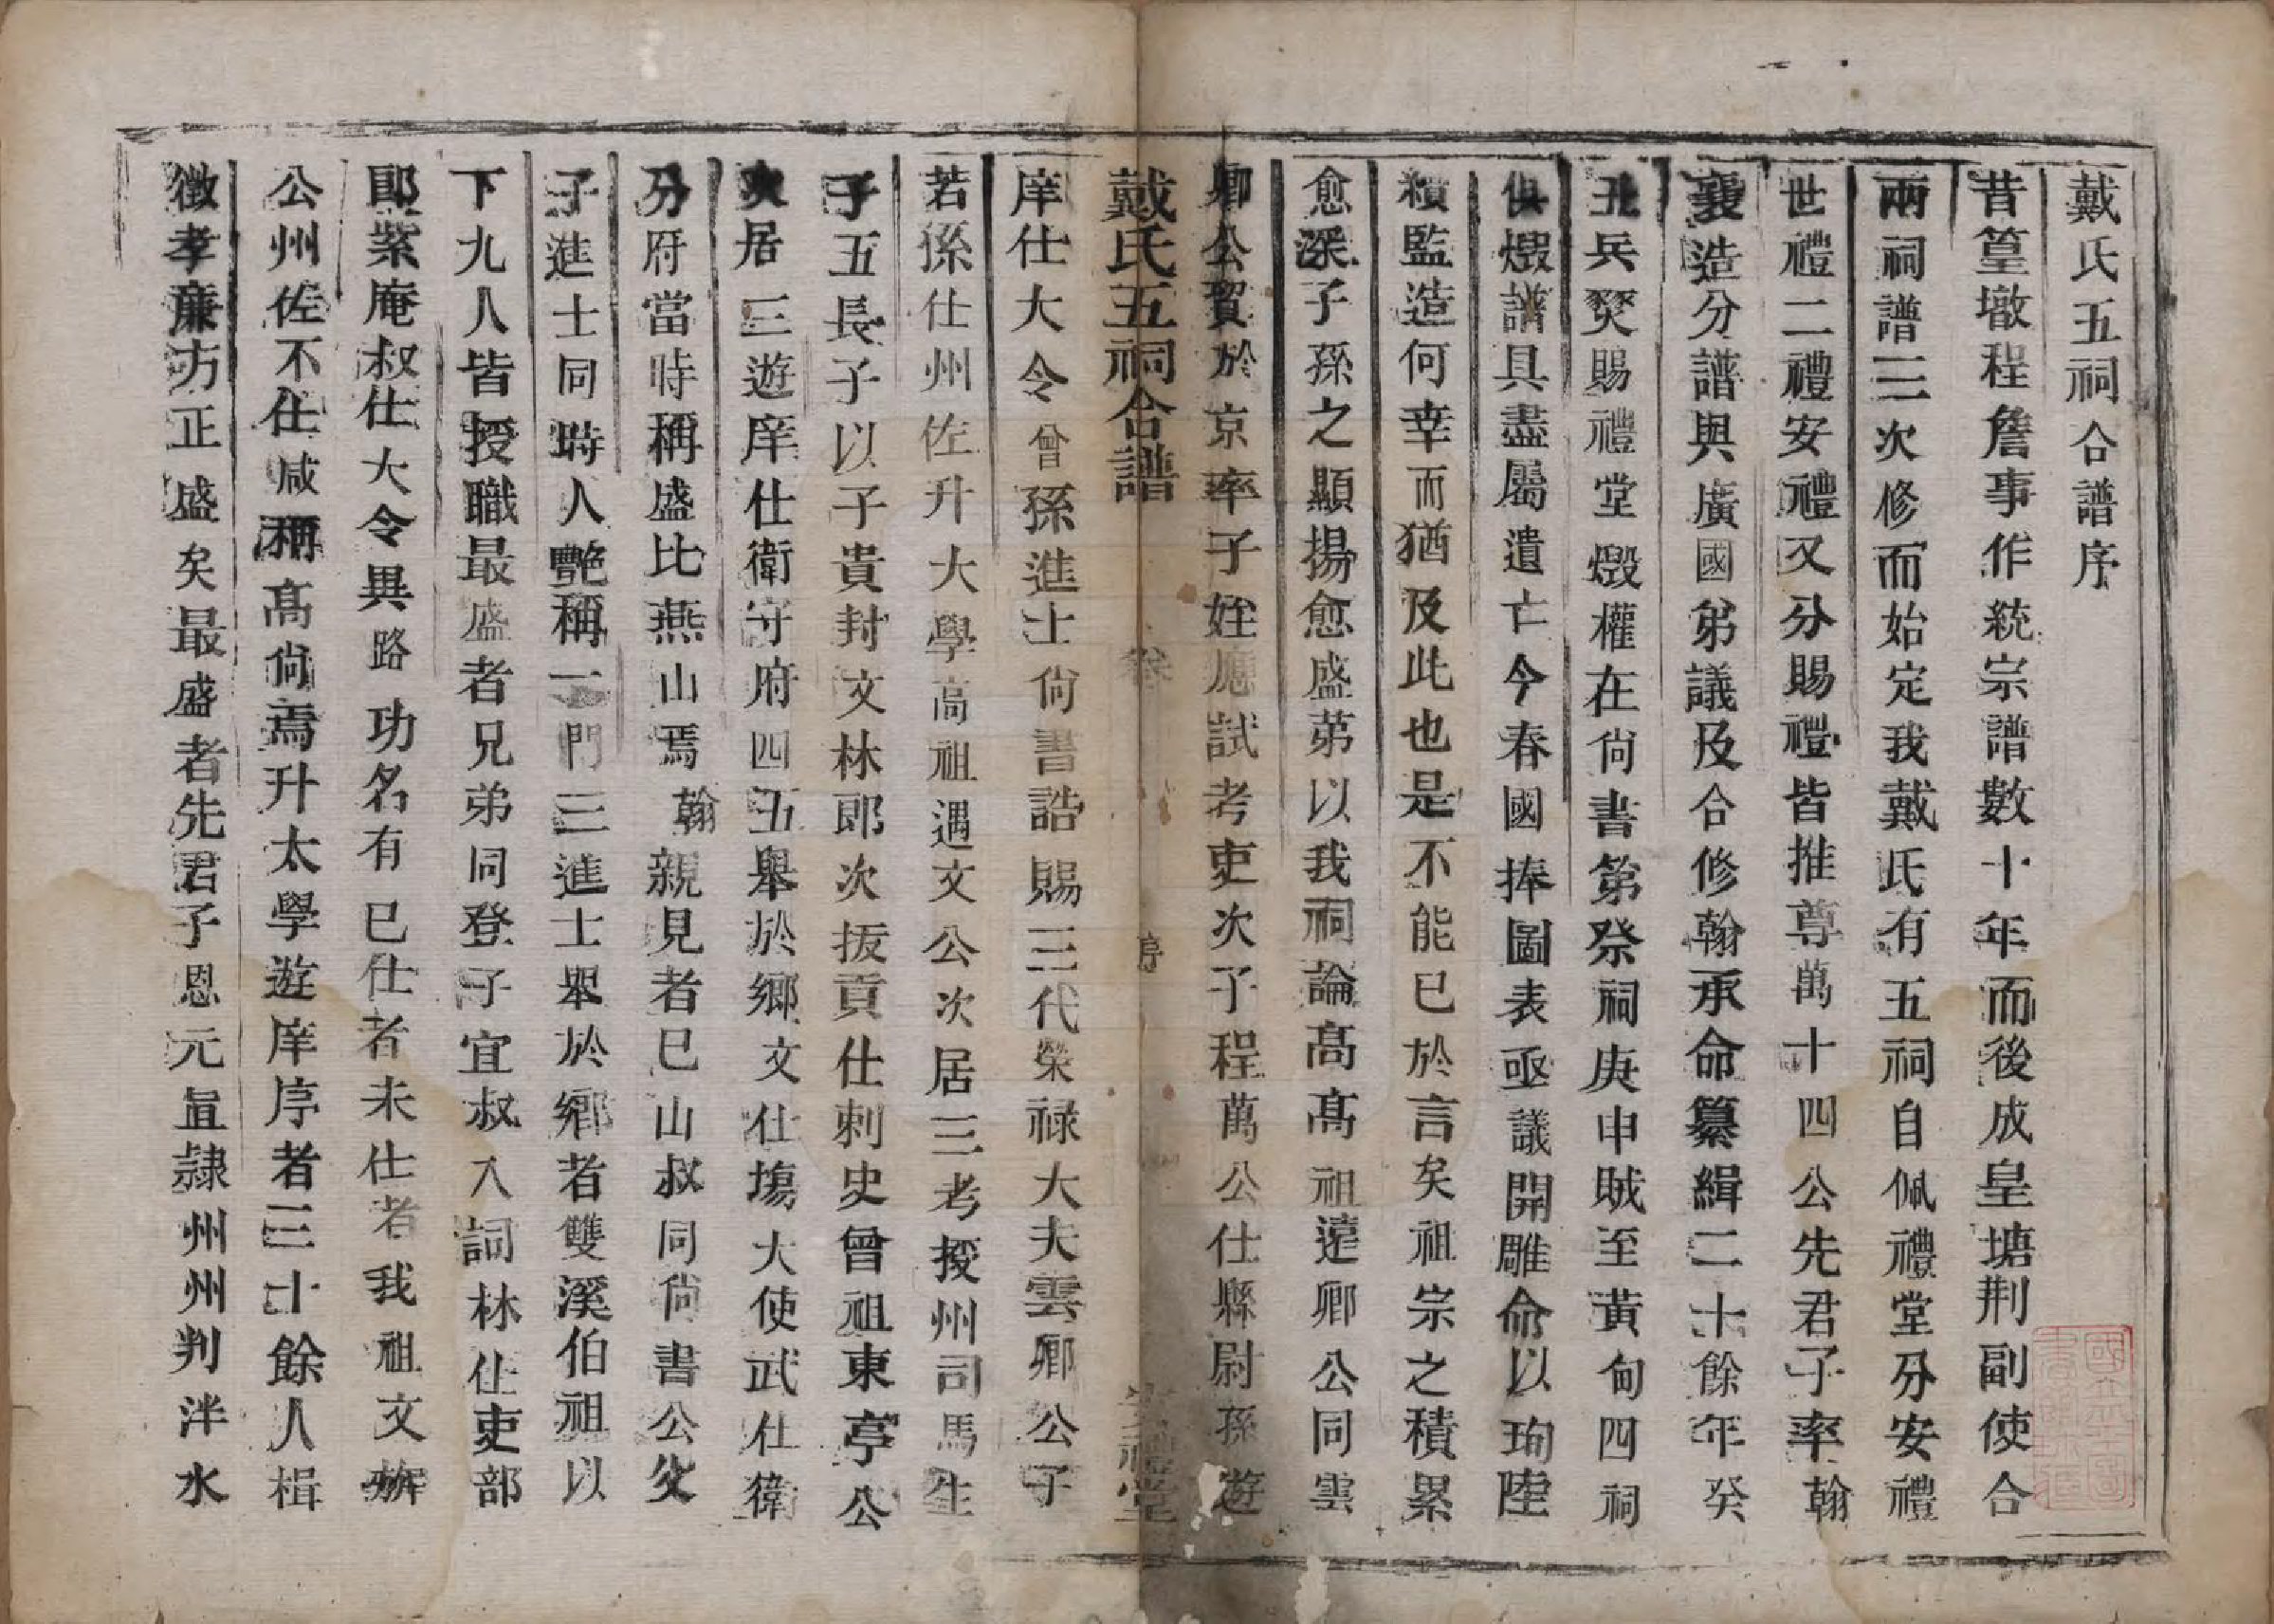 戴氏五祠合譜序
昔篁墩程詹事作統宗譜數十年而後成皇塘荆副使合
兩祠譜三次修而始定我戴氏有五祠自佩禮堂分安禮
世禮二禮安禮又分賜禮皆推尊萬十四公先君子率翰
襄造分譜與廣國弟議及合修翰承命纂緝二十餘年癸
丑兵燹賜禮堂燬權在尚書第祭祠庚申賊至黃甸四祠
俱燬譜具盡屬遺亡今春國捧圖表亟議開雕命以珣陸
續監造何幸而猶及此也是不能已於言矣祖宗之積累
愈深子孫之顯揚愈盛第以我祠論高高祖遠卿公同雲
卿公貿於京率子姪應試考吏次子程萬公仕縣尉孫遊
戴氏五祠合譜
卷
序
禮堂
庠仕大令曾孫進士尚書誥賜三代榮祿大夫雲卿公子
若孫仕州佐升大學高祖遇文公次居三考授州司馬生
子五長子以子貴封文林郎次拔貢仕刺史曾祖東亭公
次居三遊庠仕衛守府四五舉於鄉文仕塲大使武仕衛
分府當時稱盛比燕山焉翰親見者巳山叔同尚書公父
子進士同時人艷稱一門三進士舉於鄉者雙溪伯祖以
下九人皆授職最盛者兄弟同登子宜叔入詞林仕吏部
郎紫庵叔仕大令異路功名有已仕者未仕者我祖文
公州佐不仕咸稱高尚焉升太學遊庠序者三十餘人楫
徵孝廉方正盛矣最盛者先君子恩元直隸州州判泮水